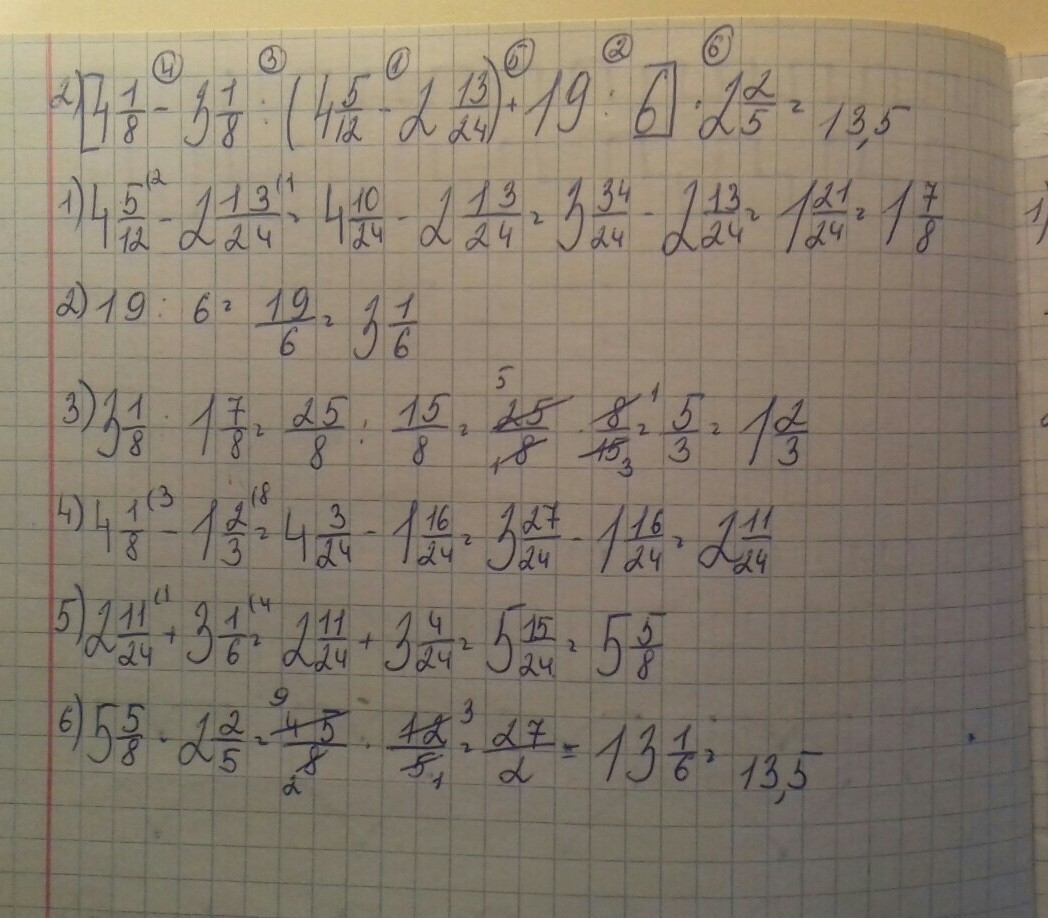 ④ ③ ① ⑤ ② ⑥
2) [4 1/8 - 3 1/8 : (4 5/12 - 2 13/24) + 19 : 6] · 2 2/5 = 13,5
1) 4 5/12 (2 - 2 13/24 (1 = 4 10/24 - 2 13/24 = 3 34/24 - 2 13/24 = 1 21/24 = 1 7/8
2) 19 : 6 = 19/6 = 3 1/6
3) 3 1/8 : 1 7/8 = 25/8 : 15/8 = 5 25/8 1 · 8/15 1 3 = 5/3 = 1 2/3
4) 4 1/8 (3 - 1 2/3 (8 = 4 3/24 - 1 16/24 = 3 27/24 - 1 16/24 = 2 11/24
5) 2 11/24 (1 + 3 1/6 (4 = 2 11/24 + 3 4/24 = 5 15/24 = 5 5/8
6) 5 5/8 · 2 2/5 = 9 45/8 2 · 12/5 3 1 = 27/2 = 13 1/6 = 13,5
1)